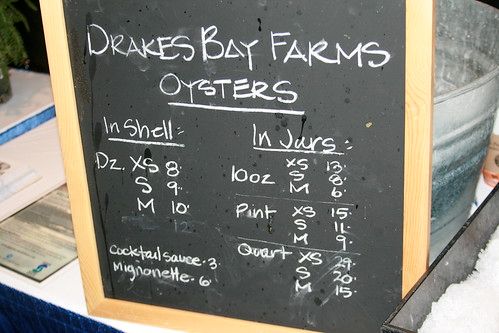 DRAKES BAY FARMS
OYSTERS
In Shell:
Dz. XS 8.
S 9.
M 10.
12.
Cocktail sauce. 3.
Mignonette. 6.
In Jars:
10oz XS 13.
S 8.
M 6.
Pint XS 15.
S 11.
M 9.
Quart XS 29.
S 20.
M 15.